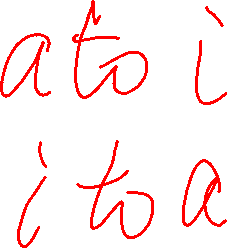 ato i
ito a